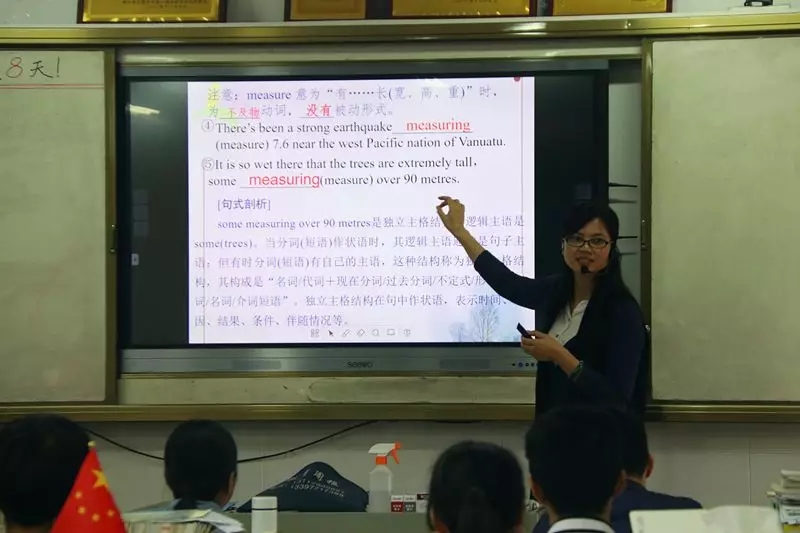 8天!
注意：measure 意为“有……长(宽、高、重)”时,
为 不及物动词， 没有 被动形式。
④There's been a strong earthquake measuring
(measure) 7.6 near the west Pacific nation of Vanuatu.
⑤It is so wet there that the trees are extremely tall,
some measuring(measure) over 90 metres.
[句式剖析]
some measuring over 90 metres是独立主格结 逻辑主语是
some(trees)。当分词(短语)作状语时，其逻辑主语 是句子主
语；但有时分词(短语)有自己的主语，这种结构称为独 格结
构，其构成是“名词/代词＋现在分词/过去分词/不定式/形
词/名词/介词短语”。独立主格结构在句中作状语，表示时间、
因、结果、条件、伴随情况等。
seewo